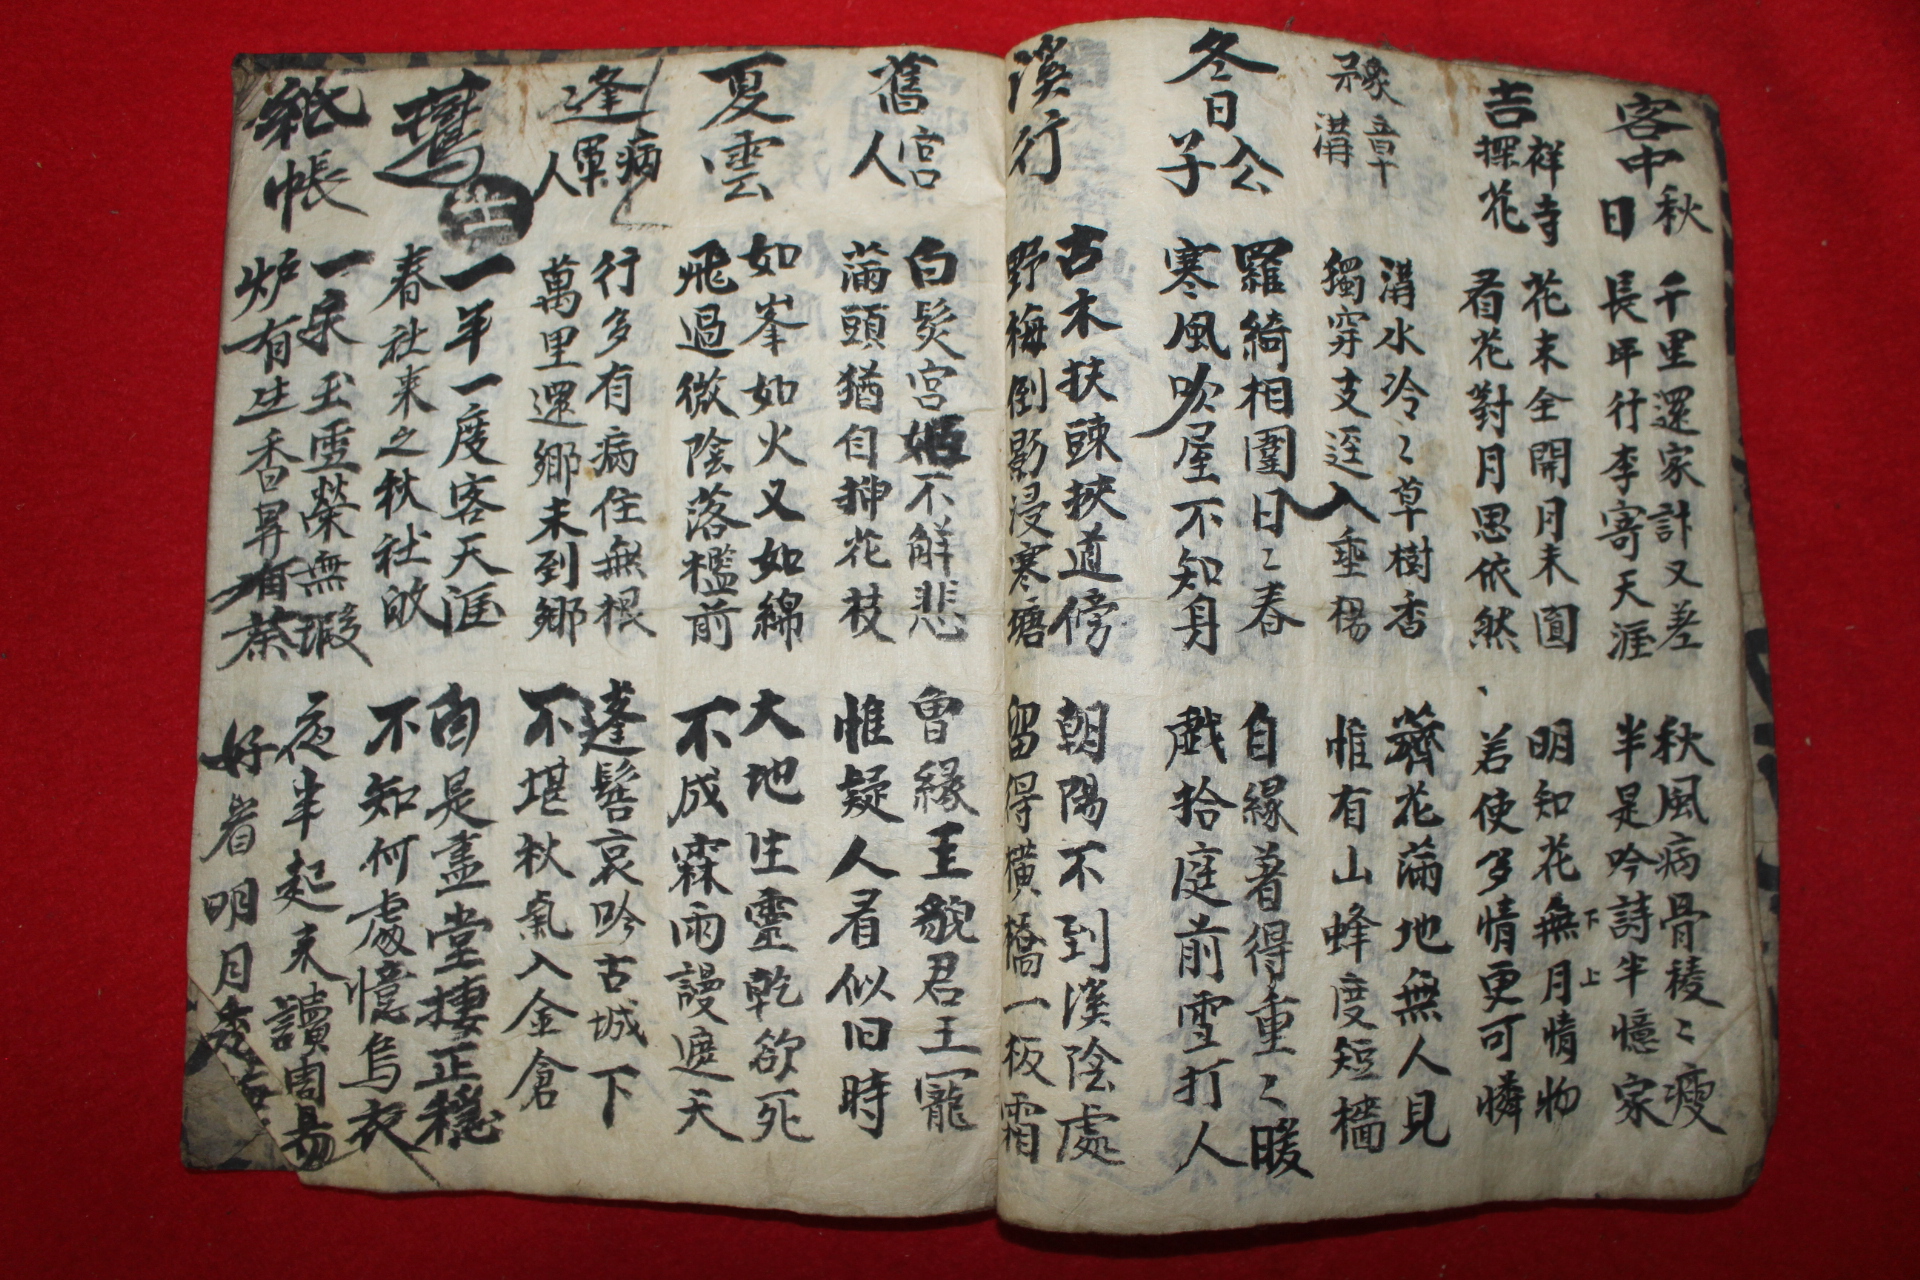 客中秋日
千里還家計又差
秋風病骨稜〻瘦
長年行李寄天涯
半是吟詩半憶家
吉祥寺探花
花未全開月未圓
明知花無月情物
下 上
看花對月思依然
若使多情更可憐
溝水冷〻草樹香
薺花滿地無人見
獨穿支逕入垂楊
惟有山蜂度短檣
冬日公子
羅綺相圍日〻春
自緣著得重〻暖
寒風吹屋不知身
戱拾庭前雪打人
溪行
古木扶踈挾道傍
朝陽不到溪陰處
野梅倒影浸寒塘
留得橫橋一板霜
舊宮人
白髮宮姬不解悲
曾緣王貌君王寵
滿頭猶自揷花枝
惟疑人看似旧時
夏雲
如峯如火又如綿
大地生靈乾欲死
飛過微陰落檻前
不成霖雨謾遮天
逢病軍人
行多有病住無根
蓬鬓哀吟古城下
萬里還鄉未到鄉
不堪秋氣入金倉
鷰
一年一度客天涯
自是畫堂捿正穩
春社來之秋社
不知何處憶烏衣
紙帳
一床玉雪榮無瑕
夜半起來讀周易
炉有生香鼎有茶
好看明月